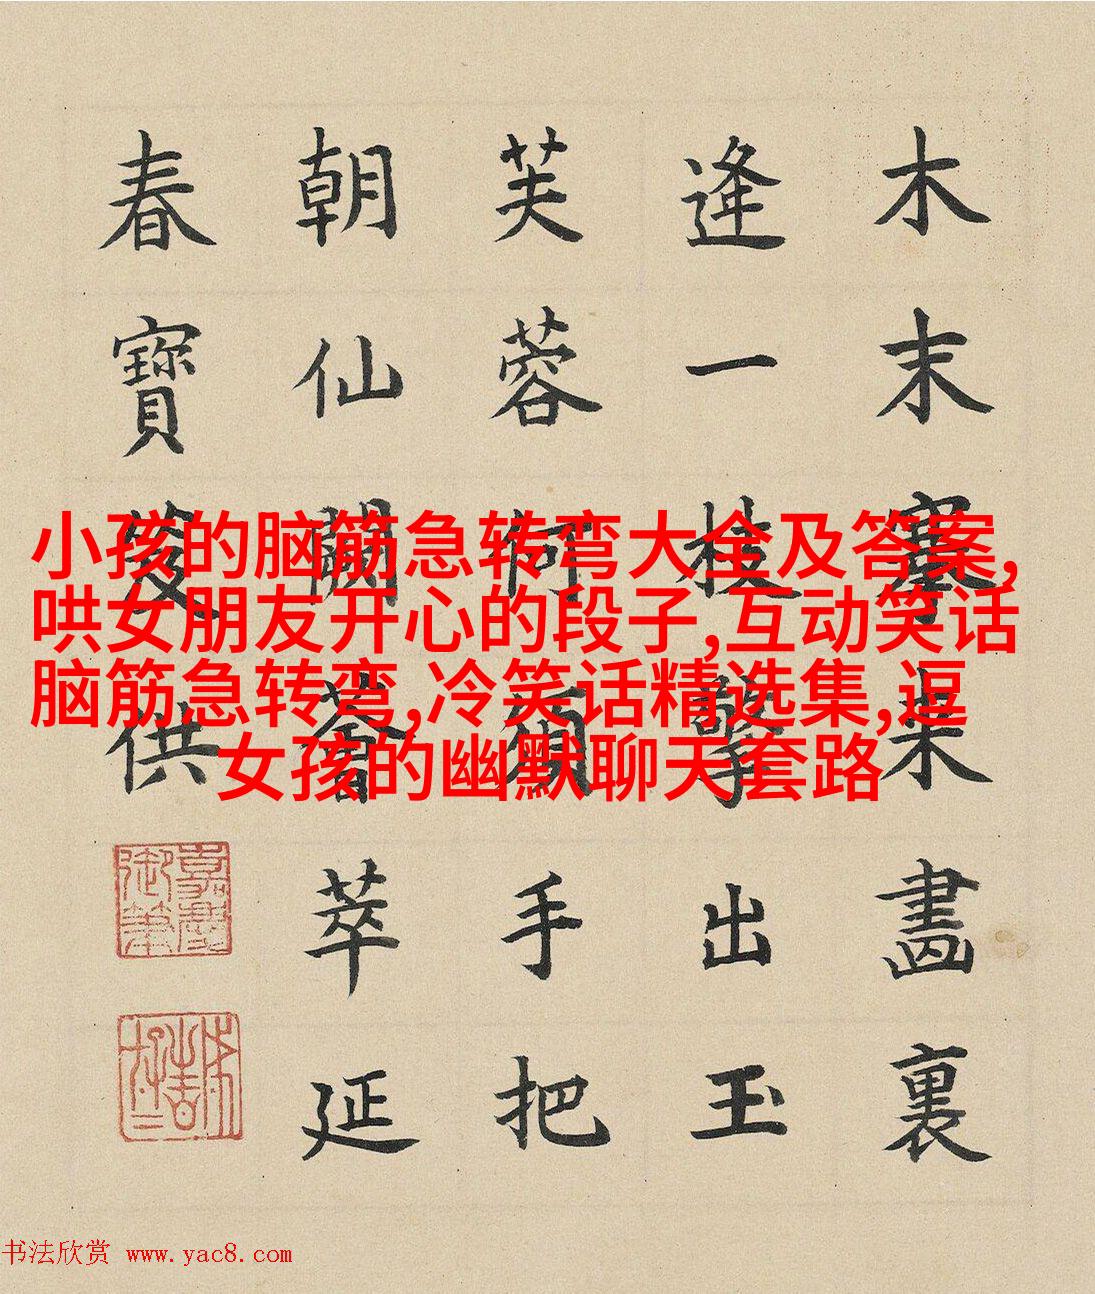 木末搴来畫裏
逢一枝擎出玉
芙蓉何須手把
朝仙闕薈萃延
春寶笈供
嘉慶御筆
小孩的脑筋急转弯大全及答案,
哄女朋友开心的段子,互动笑话
脑筋急转弯,冷笑话精选集,逗
女孩的幽默聊天套路
书法欣赏 www.yac8.com